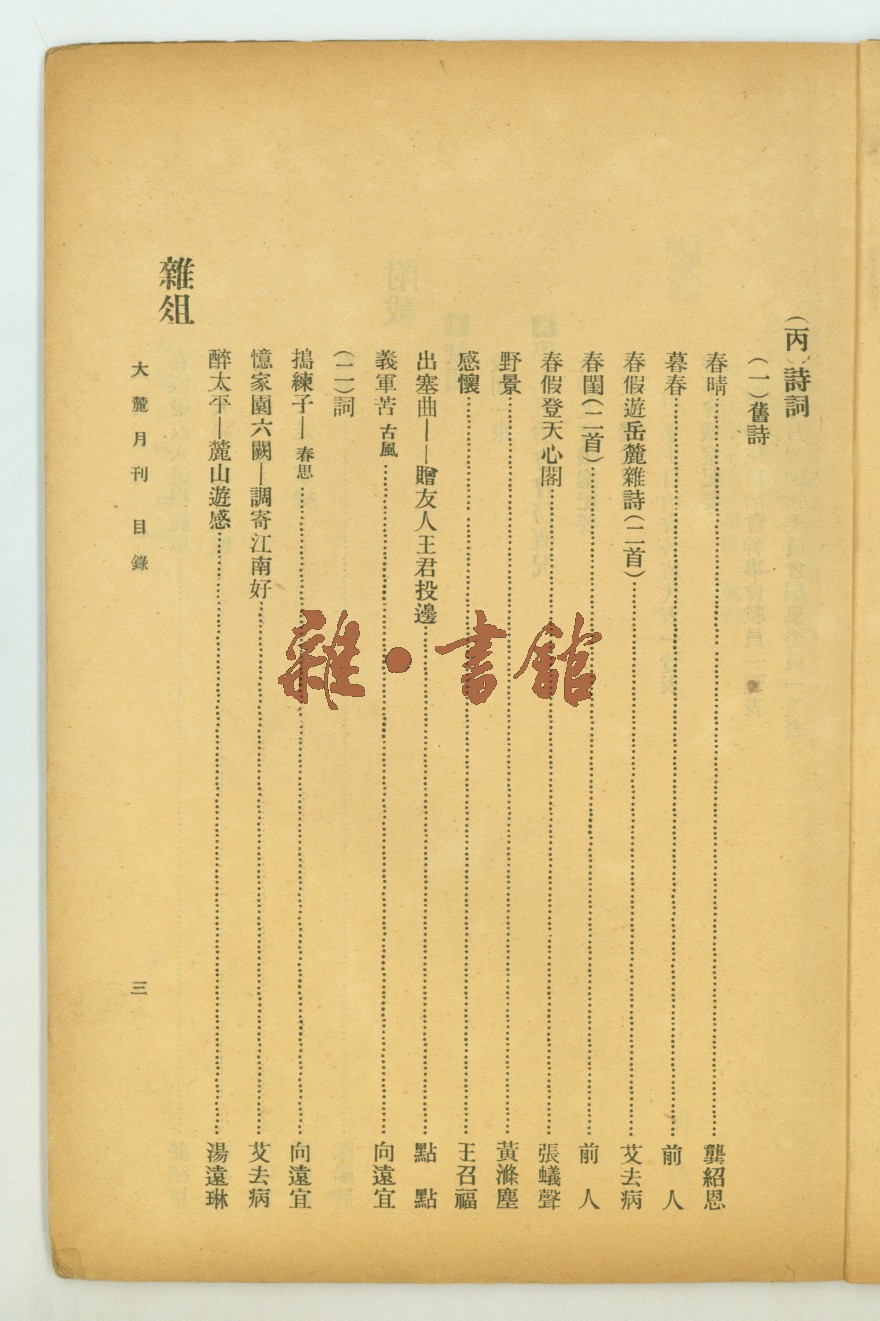 (丙)詩詞
(一)舊詩
春晴……龔紹恩
暮春……前人
春假遊岳麓雜詩(二首)……艾去病
春閨(二首)……前人
春假登天心閣……張蟻聲
野景……黃滌塵
感懷……王召福
出塞曲——贈友人王君投邊……點點
義軍苦 古風……向遠宜
(二)詞
搗練子—春思……向遠宜
憶家園六闕—調寄江南好……艾去病
醉太平—麓山遊感……湯遠琳
雜俎
大麓月刊 目錄
三
雜·書館